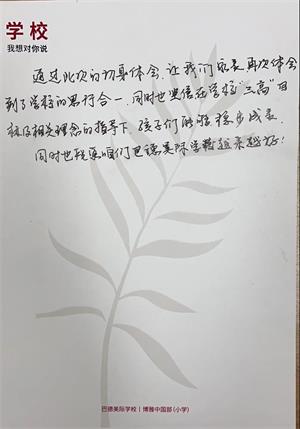 学校
我想对你说
通过此次的切身体会,让我们家长再次体会
到了学校的知行合一,同时也坚信在学校"三高"目
标及相关理念的指导下,孩子们能够稳步成长,
同时也祝愿咱们巴德美际学校越来越好!
巴德美际学校 | 博雅中国部(小学)